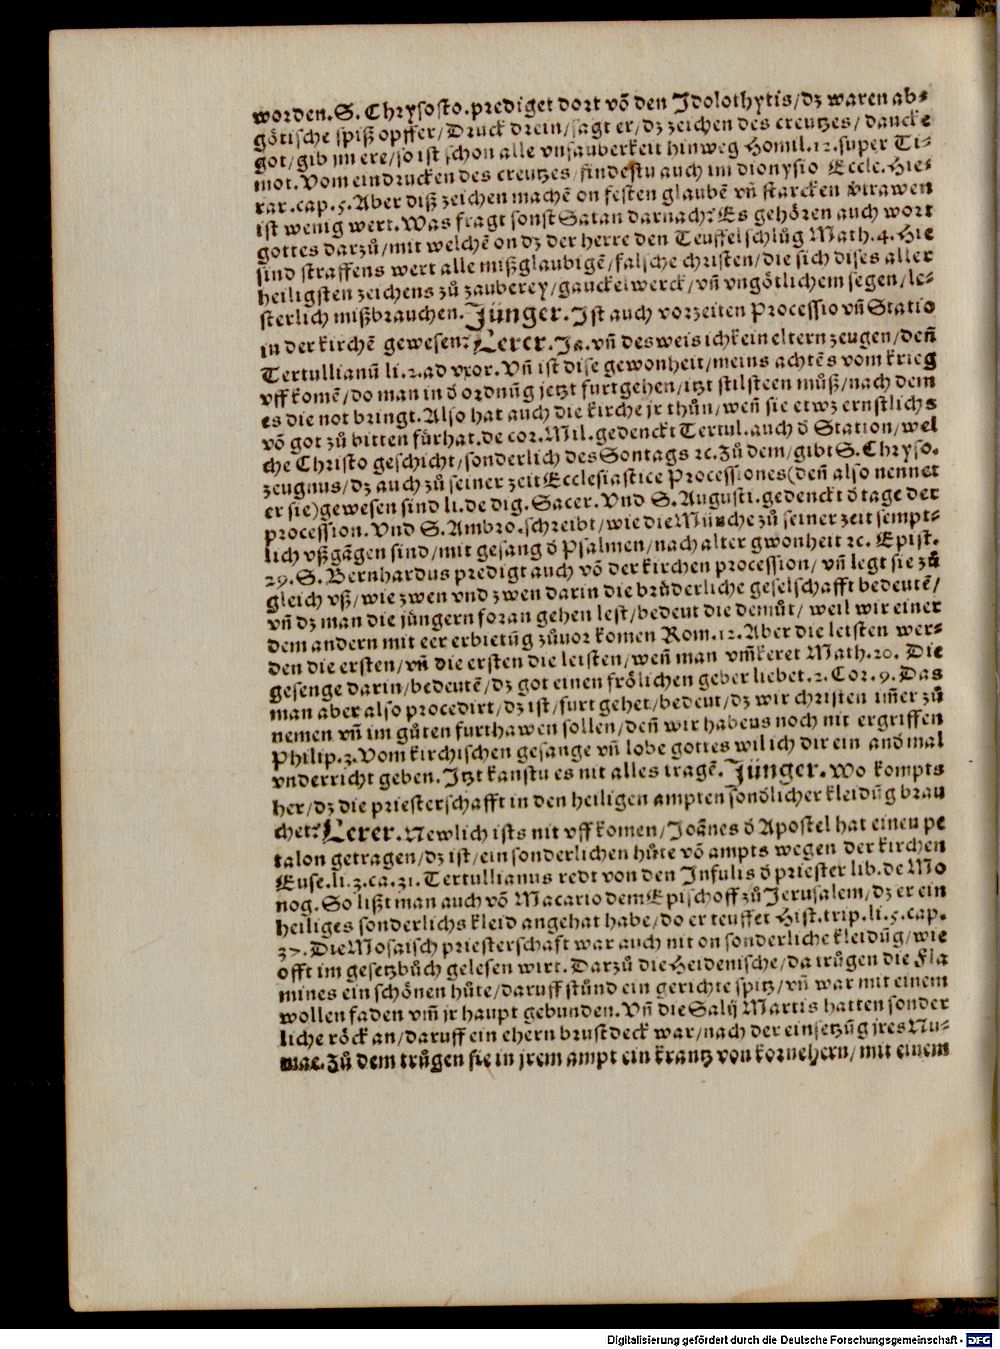 worden.S. Chrysosto.prediget dort võ den Idolothytis/dz waren ab⸗
götische spiß opffer/Druck drein/sagt er/dz zeichen des creutzes/ dancke
got/gib im ere/so ist schon alle vnsauberkeit hinweg Homil.12.super Ti⸗
mot. Vom eindrucken des creutzes/findestu auch im dionysio Eccle. Hie⸗
rar.cap.5. Aber diß zeichen machē on festen glaubē vñ starcken v̄trawen
ist wenig wert. Was fragt sonst Satan darnach? Es gehören auch wort
gottes darzů/mit welchē on dz der herre den Teuffel schlůg Math.4. Hie
sind straffens wert alle mißglaubigē/falsche christen/die sich dises aller
heiligsten zeichens zů zauberey/gauckelwerck/vñ vngötlichem segen/le⸗
sterlich mißbrauchen. Jünger. Ist auch vorzeiten Processio vñ Statio
in der kirchē gewesen? Lerer. Ja. vñ des weis ich kein eltern zeugen/deñ
Tertullianū li.2.ad vxor. Vñ ist dise gewonheit/meins achtēs vom krieg
vff komē/do man in d̄ ordnūg jetzt furtgehen/itzt stilsteen můß/nach dem
es die not bringt. Also hat auch die kirche jr thůn/weñ sie etwz ernstlichs
võ got zů bitten fürhat.de cor. Mil.gedenckt Tertul.auch d̄ Station/wel
che Christo geschicht/sonderlich des Sontags ꝛc. Zů dem/gibt S. Chryso.
zeugnus/dz auch zů seiner zeit Ecclesiastice Processiones(deñ also nennet
er sie)gewesen sind li.de dig. Sacer. Vnd S. Augusti.gedenckt d̄ tage der
procession. Vnd S. Ambro.schreibt/wie die Münche zů seiner zeit sempt⸗
lich vßgāgen sind/mit gesang d̄ Psalmen/nach alter gwonheit ꝛc. Epist.
29. S. Bernhardus predigt auch võ der kirchen procession/ vñ legt sie zů
gleich vß/wie zwen vnd zwen darin die brüderliche geselschafft bedeutē/
vñ dz man die jüngern foran gehen lest/bedeut die demůt/ weil wir einer
dem andern mit eer erbietūg zůuor komen Rom.12. Aber die letsten wer⸗
den die ersten/vñ die ersten die letsten/weñ man vm̄keret Math.20. Die
gesenge darin/bedeutē/dz got einen frölichen geber liebet.2. Cor.9. Das
man aber also procedirt/dz ist/furt gehet/bedeut/dz wir christen im̄er zů
nemen vñ im gůten furthawen sollen/deñ wir habens noch nit ergriffen
Philip.3. Vom kirchischen gesange vñ lobe gottes wil ich dir ein and̄ mal
vnderricht geben. Itzt kanstu es nit alles tragē. Jünger. Wo kompts
her/dz die priesterschafft in den heiligen ampten sond̄licher kleidūg brau
chet? Lerer. Newlich ists nit vff komen/Joānes d̄ Apostel hat einen pe
talon getragen/dz ist/ein sonderlichen hůte võ ampts wegen der kirchen
Euse.li.3.ca.31. Tertullianus redt von den Infulis d̄ priester lib.de Mo
nog. So lißt man auch võ Macario dem Epischoff zů Jerusalem/dz er ein
heiliges sonderlichs kleid angehat habe/do er teuffet Hist.trip.li.5.cap.
37. Die Mosaisch priesterschaft war auch nit on sonderliche kleidūg/wie
offt im gesetzbůch gelesen wirt. Darzů die Heidenische/da trůgen die Fla
mines ein schönen hůte/daruff stůnd ein gerichte spitz/vñ war mit einem
wollen faden vm̄ jr haupt gebunden. Vñ die Salij Martis hatten sonder
liche röck an/daruff ein ehern brust deck war/nach der einsetzūg jres Nu⸗
mae. Zů dem trůgen sie in jrem ampt ein krantz von kornehern/ mit einem
Digitalisierung gefördert durch die Deutsche Forschungsgemeinschaft - DFG